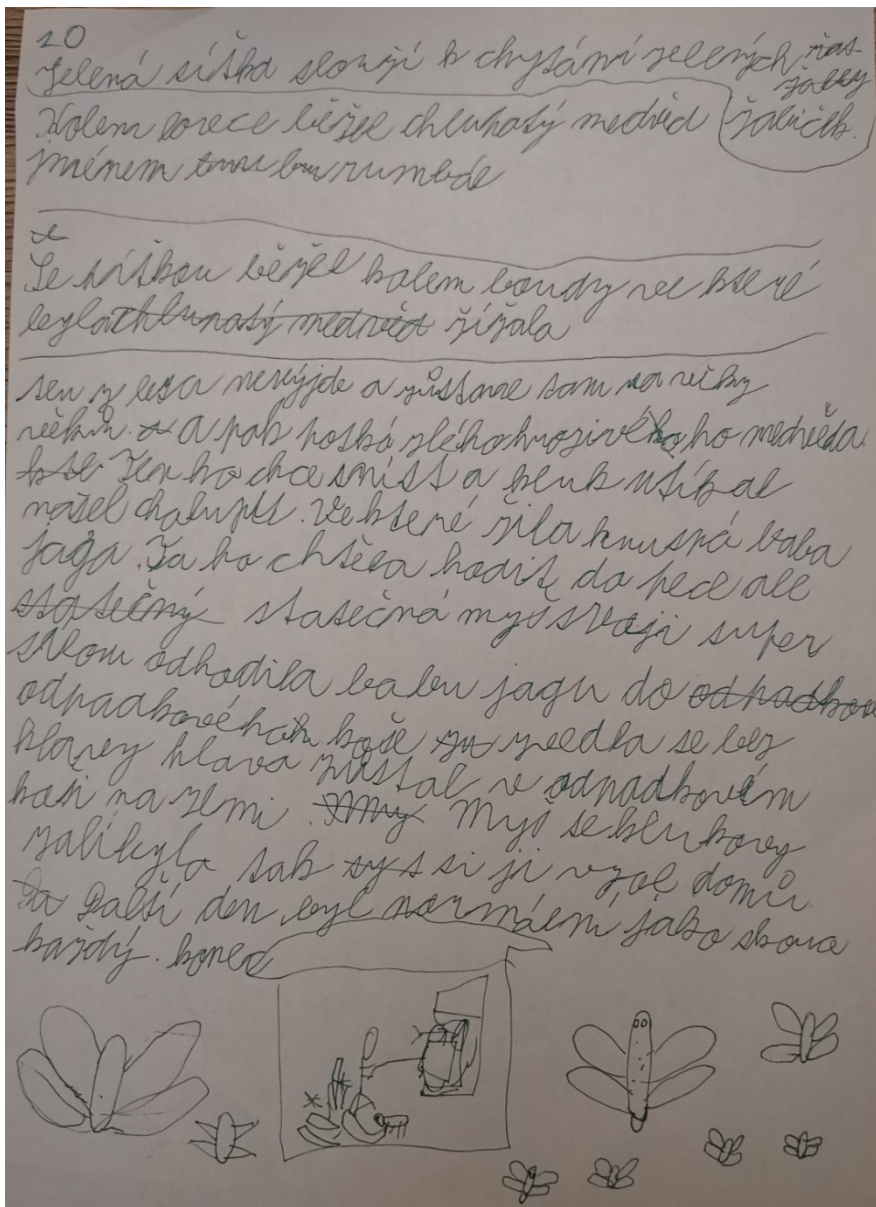 20
Zelená síťka slouží k chytání zelených řas
žabiček.
Kolem lovece běžel chlupatý medvěd
jménem rumbde
Se síťkou běžel kolem boudy ve které
byla chlupatý medvěd žížala
ten z lesa nevýjde a zůstane sam na věky
věků. A pak potká zlého hrozivého ho medvěda.
Ten ho chce sníst a kluk utíkal
našel chalupu. Ve které žila hnusná baba
jaga. Ta ho chtěla hodit do pece ale
statečný statečná myš svoji super
sílou odhodila babu jagu do odpadkov
odpadkového koše zvedla se bez
hlavy hlava zůstal v odpadkovém
koši na zemi. Myš se klukovy
zalíbyla tak si ji vzal domů.
Další den byl normální jako skoro
každý. konec